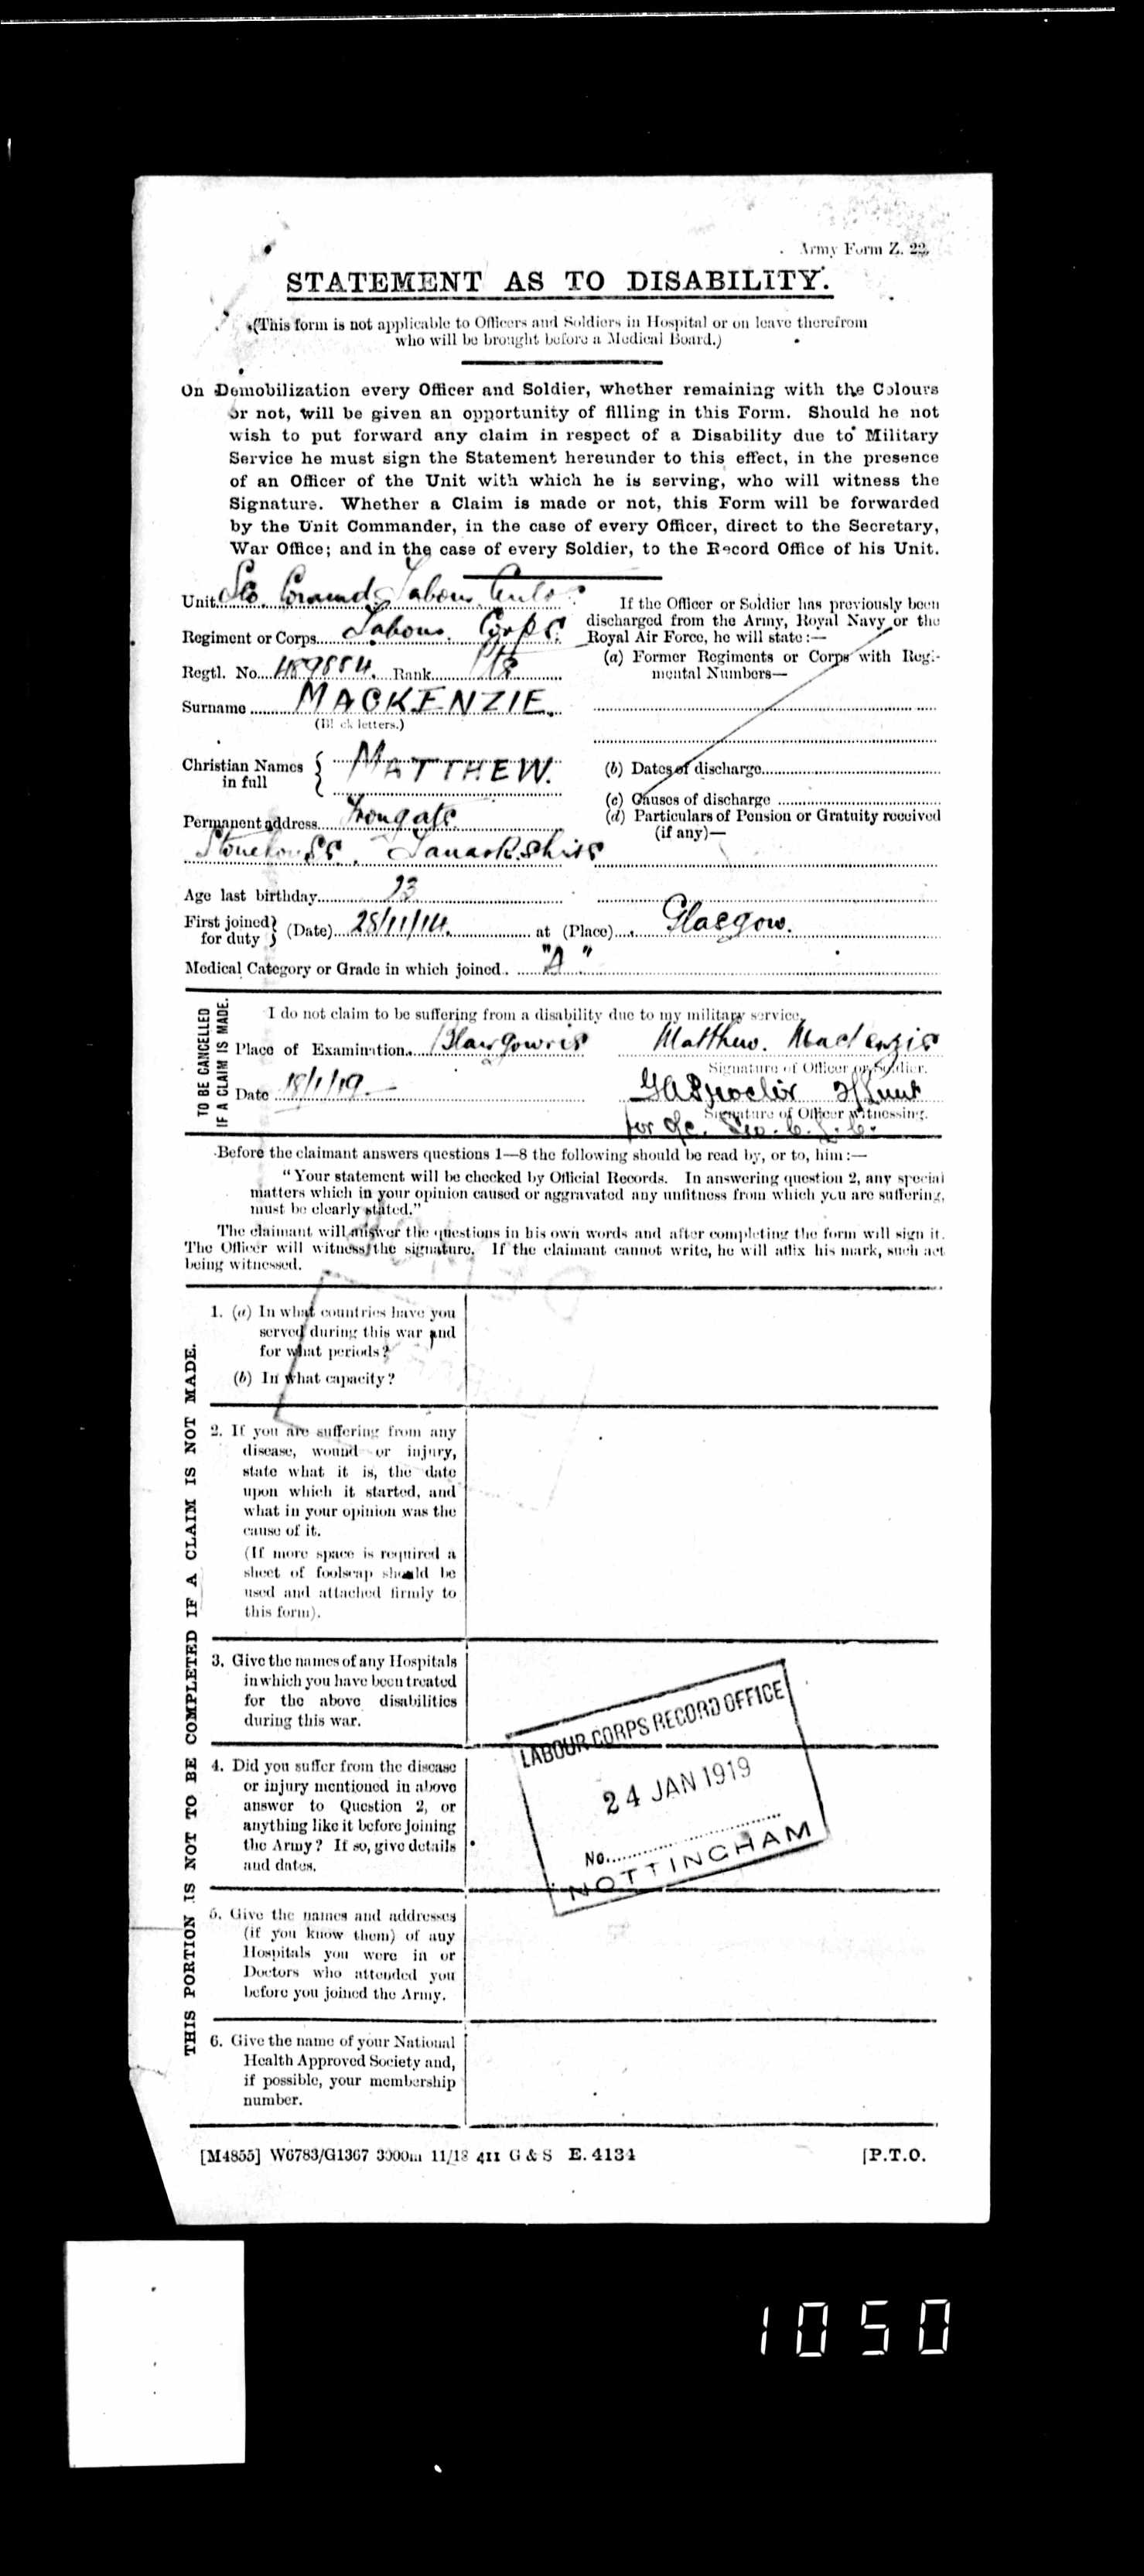 Army Form Z. 22.
STATEMENT AS TO DISABILITY.
(This form is not applicable to Officers and Soldiers in Hospital or on leave therefrom
who will be brought before a Medical Board.)
On Demobilization every Officer and Soldier, whether remaining with the Colours
or not, will be given an opportunity of filling in this Form. Should he not
wish to put forward any claim in respect of a Disability due to Military
Service he must sign the Statement hereunder to this effect, in the presence
of an Officer of the Unit with which he is serving, who will witness the
Signature. Whether a Claim is made or not, this Form will be forwarded
by the Unit Commander, in the case of every Officer, direct to the Secretary,
War Office; and in the case of every Soldier, to the Record Office of his Unit.
Unit Sco. Command Labour
Regiment or Corps Labour Corps.
Regtl. No. 489884. Rank Pte
Surname MACKENZIE.
(Block letters.)
Christian Names in full MATTHEW.
Permanent address Trongate.
Stonehouse. Lanarkshire
Age last birthday 23
If the Officer or Soldier has previously been
discharged from the Army, Royal Navy or the
Royal Air Force, he will state:—
(a) Former Regiments or Corps with Regi-
mental Numbers—
(b) Dates of discharge
(c) Causes of discharge
(d) Particulars of Pension or Gratuity received
(if any)—
First joined for duty (Date) 28/11/14. at (Place) Glasgow.
Medical Category or Grade in which joined "A"
TO BE CANCELLED
IF A CLAIM IS MADE.
I do not claim to be suffering from a disability due to my military service.
Place of Examination Blairgowrie Matthew. MacKenzie
Signature of Officer or Soldier.
Date 18/1/19. G A Proctor 2/Lieut
Signature of Officer witnessing.
for O/c. Sco. C. L. C.
Before the claimant answers questions 1—8 the following should be read by, or to, him:—
"Your statement will be checked by Official Records. In answering question 2, any special
matters which in your opinion caused or aggravated any unfitness from which you are suffering,
must be clearly stated."
The claimant will answer the questions in his own words and after completing the form will sign it.
The Officer will witness the signature. If the claimant cannot write, he will affix his mark, such act
being witnessed.
THIS PORTION IS NOT TO BE COMPLETED IF A CLAIM IS NOT MADE.
1. (a) In what countries have you
served during this war and
for what periods?
(b) In what capacity?
2. If you are suffering from any
disease, wound or injury,
state what it is, the date
upon which it started, and
what in your opinion was the
cause of it.
(If more space is required a
sheet of foolscap should be
used and attached firmly to
this form).
3. Give the names of any Hospitals
in which you have been treated
for the above disabilities
during this war.
4. Did you suffer from the disease
or injury mentioned in above
answer to Question 2, or
anything like it before joining
the Army? If so, give details
and dates.
LABOUR CORPS RECORD OFFICE
24 JAN 1919
No.
NOTTINGHAM
5. Give the names and addresses
(if you know them) of any
Hospitals you were in or
Doctors who attended you
before you joined the Army.
6. Give the name of your National
Health Approved Society and,
if possible, your membership
number.
[M4855] W6783/G1367 3000m 11/18 411 G & S E. 4134 [P.T.O.
1050